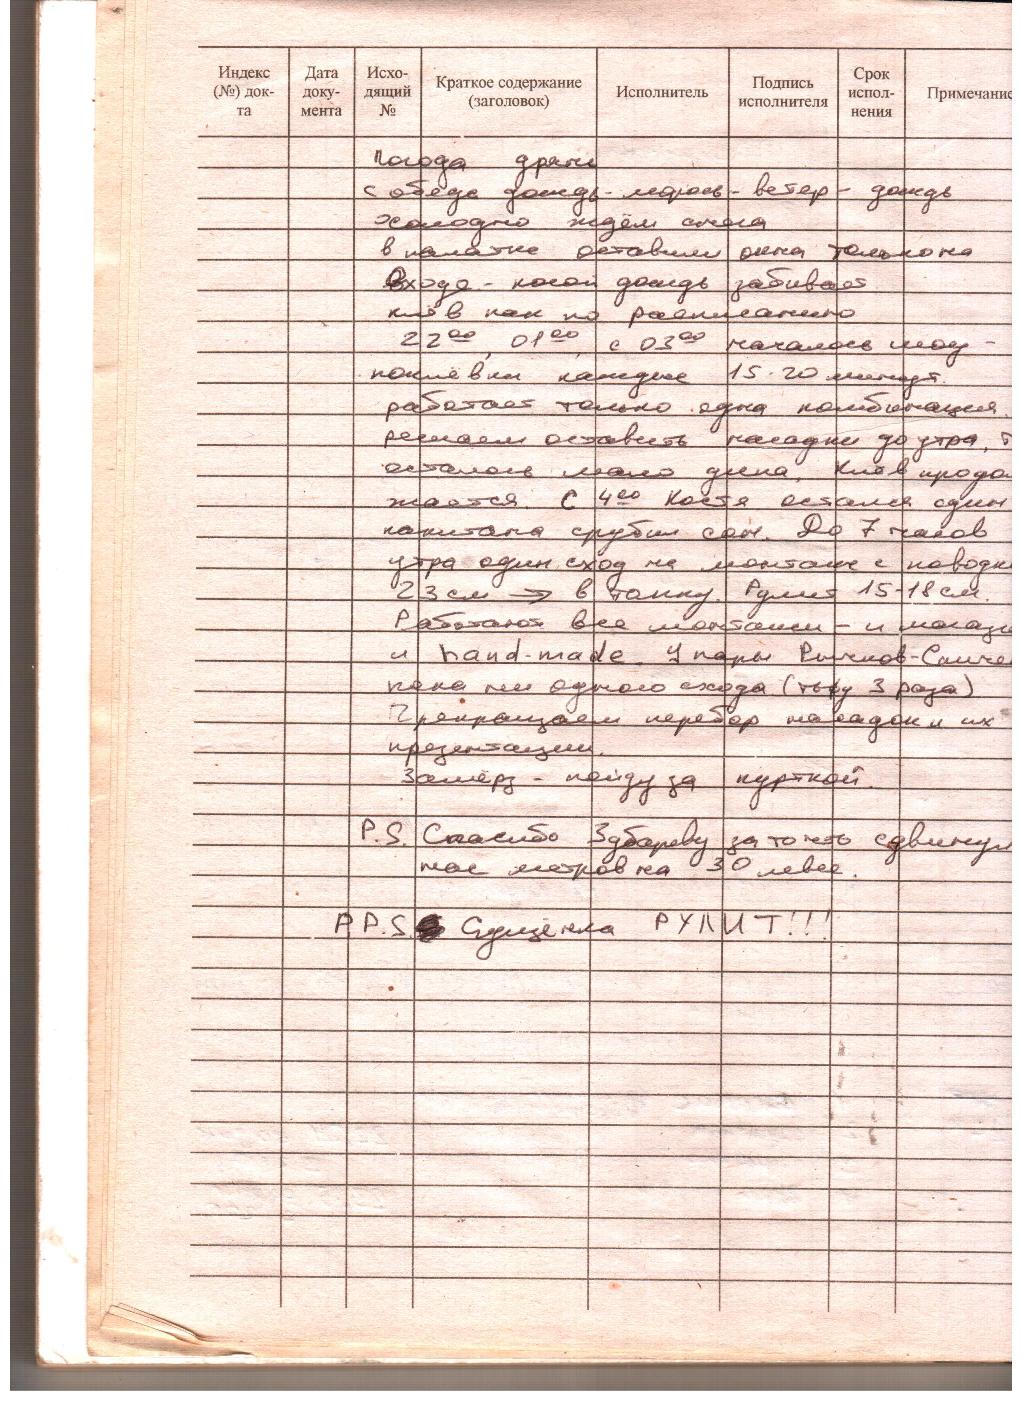 Индекс (№) док-та
Дата доку-мента
Исхо-дящий №
Краткое содержание (заголовок)
Исполнитель
Подпись исполнителя
Срок испол-нения
Примечание
Погода дрянь
с обеда дождь-морось-ветер-дождь
холодно ждём снега
в палатке оставили окна только на
входе - косой дождь забивает
клёв как по расписанию
22⁰⁰, 01⁰⁰, с 03⁰⁰ началось шоу -
поклёвки каждые 15-20 минут.
работает только одна комбинация.
решаем оставить насадки до утра, т
осталось мало дипа, клёв продол
жается. С 4⁰⁰ Костя остался один
капитана срубил сон. До 7 часов
утра один сход на монтаже с поводк
23 см → в топку. Рулит 15-18 см.
Работают все монтажи - и магази
и hand-made. У пары Рычков-
пока ни одного схода (тьфу 3 раза)
Прекращаем перебор насадок и их
презентации.
Замёрз - пойду за курткой.
P.S. Спасибо за то что сдвинул
нас метров на 30 левее.
P.P.S. Сгущёнка РУЛИТ!!!